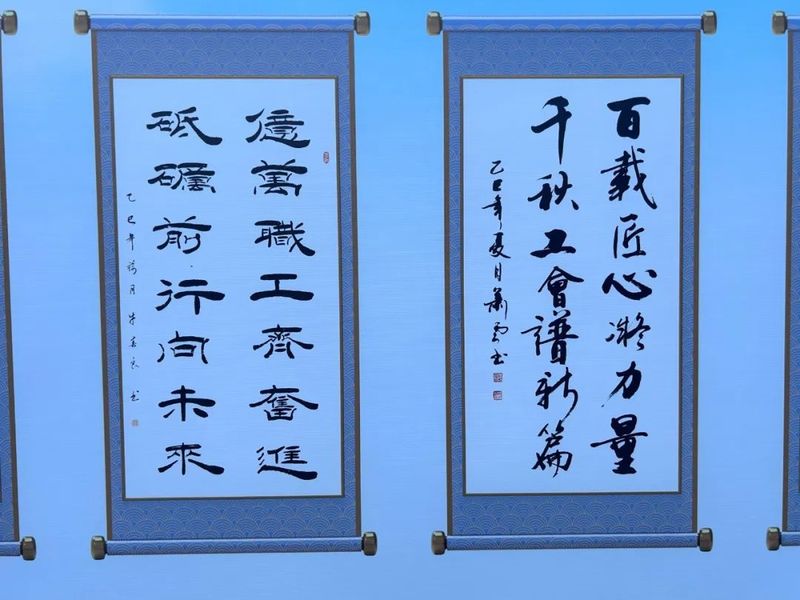 百載匠心凝力量
千秋工會譜新篇
乙巳年夏月蕭雲书
億萬職工齊奮進
砥礪前行向未來
乙巳年荷月 书